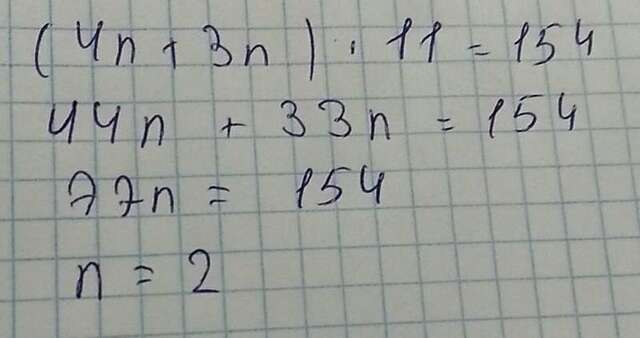 (4n + 3n) · 11 = 154
44n + 33n = 154
77n = 154
n = 2